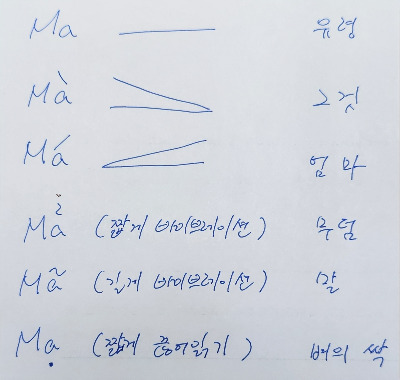 Ma 유령
Mà 그것
Má 엄마
Mả (짧게 바이브레이션) 무덤
Mã (길게 바이브레이션) 말
Mạ (짧게 끊어읽기) 벼의 싹